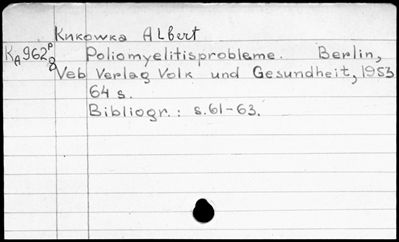 Кнкоwка Albert
KA962 P8 Poliomyelitisprobleme. Berlin,
Veb Verlag Volk und Gesundheit, 1953
64 s.
Bibliogr.: s.61-63.